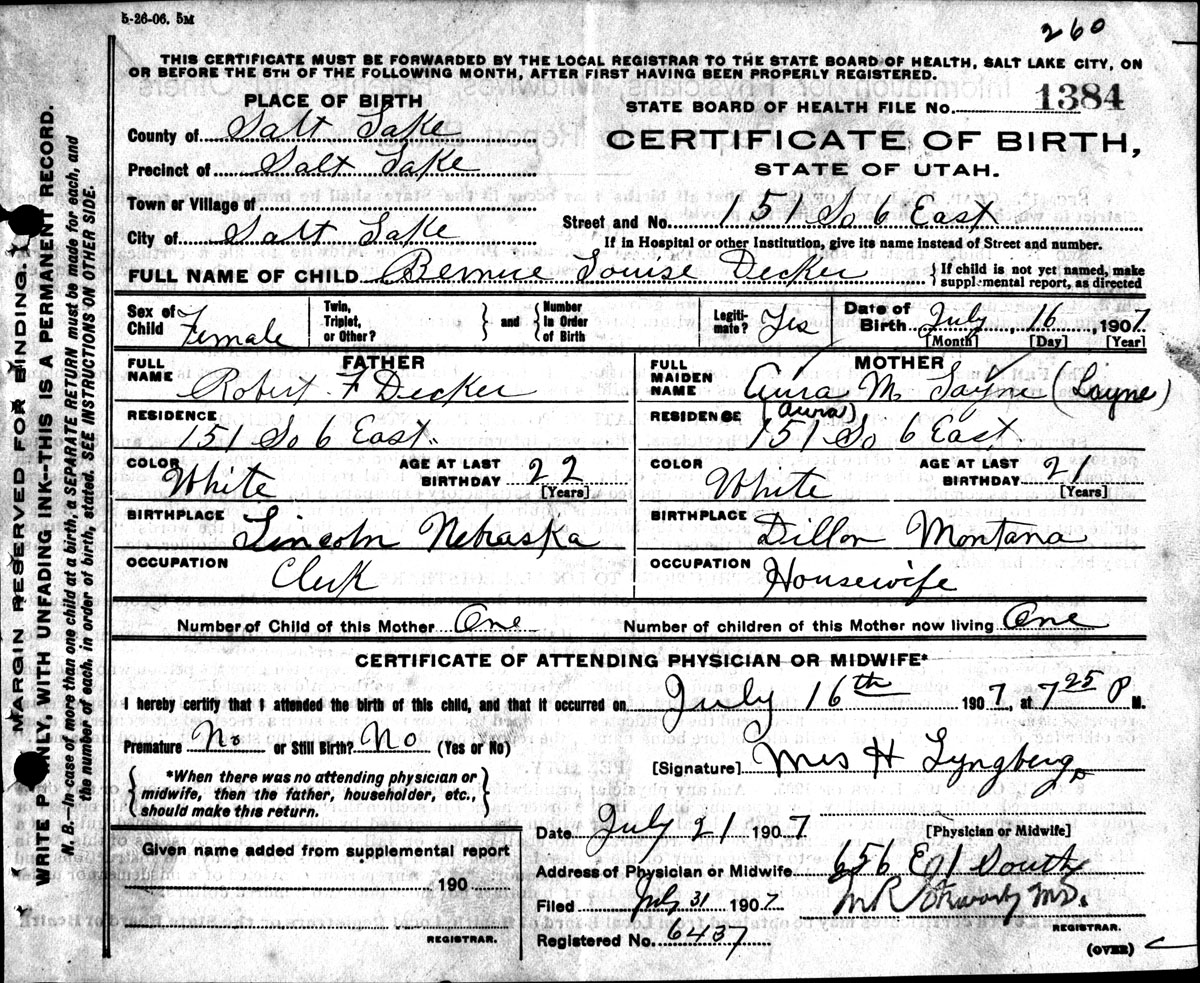 5-26-06. 5M
260
THIS CERTIFICATE MUST BE FORWARDED BY THE LOCAL REGISTRAR TO THE STATE BOARD OF HEALTH, SALT LAKE CITY, ON
OR BEFORE THE 5TH OF THE FOLLOWING MONTH, AFTER FIRST HAVING BEEN PROPERLY REGISTERED.
PLACE OF BIRTH
STATE BOARD OF HEALTH FILE NO. 1384
County of Salt Lake
CERTIFICATE OF BIRTH,
Precinct of Salt Lake
STATE OF UTAH.
Town or Village of
Street and No. 151 So 6 East
City of Salt Lake
If in Hospital or other Institution, give its name instead of Street and number.
FULL NAME OF CHILD Bernice Louise Decker { If child is not yet named, make
supplemental report, as directed
Sex of Child Female
Twin, Triplet, or Other? } and { Number in Order of Birth
Legiti-mate? Yes
Date of Birth July 16, 1907
[Month] [Day] [Year]
FATHER
FULL NAME Robert F Decker
MOTHER
FULL MAIDEN NAME Aura M. Layne (Layne)
(Aura)
RESIDENCE 151 So 6 East.
RESIDENCE 151 So 6 East
COLOR White AGE AT LAST BIRTHDAY 22 [Years]
COLOR White AGE AT LAST BIRTHDAY 21 [Years]
BIRTHPLACE Lincoln Nebraska
BIRTHPLACE Dillon Montana
OCCUPATION Clerk
OCCUPATION Housewife
Number of Child of this Mother One Number of children of this Mother now living One
CERTIFICATE OF ATTENDING PHYSICIAN OR MIDWIFE*
I hereby certify that I attended the birth of this child, and that it occurred on July 16th 1907, at 7 25 P M.
Premature No or Still Birth? No (Yes or No)
[Signature] Mrs H Lyngberg
{ *When there was no attending physician or
midwife, then the father, householder, etc.,
should make this return. }
Date July 21 1907 [Physician or Midwife]
Given name added from supplemental report
190
REGISTRAR.
Address of Physician or Midwife 656 E 1 South
Filed July 31 1907 M.D.
REGISTRAR.
Registered No. 6437
(OVER)
MARGIN RESERVED FOR BINDING.
WRITE PLAINLY, WITH UNFADING INK--THIS IS A PERMANENT RECORD.
N. B.—In case of more than one child at a birth, a SEPARATE RETURN must be made for each, and
the number of each, in order of birth, stated. SEE INSTRUCTIONS ON OTHER SIDE.